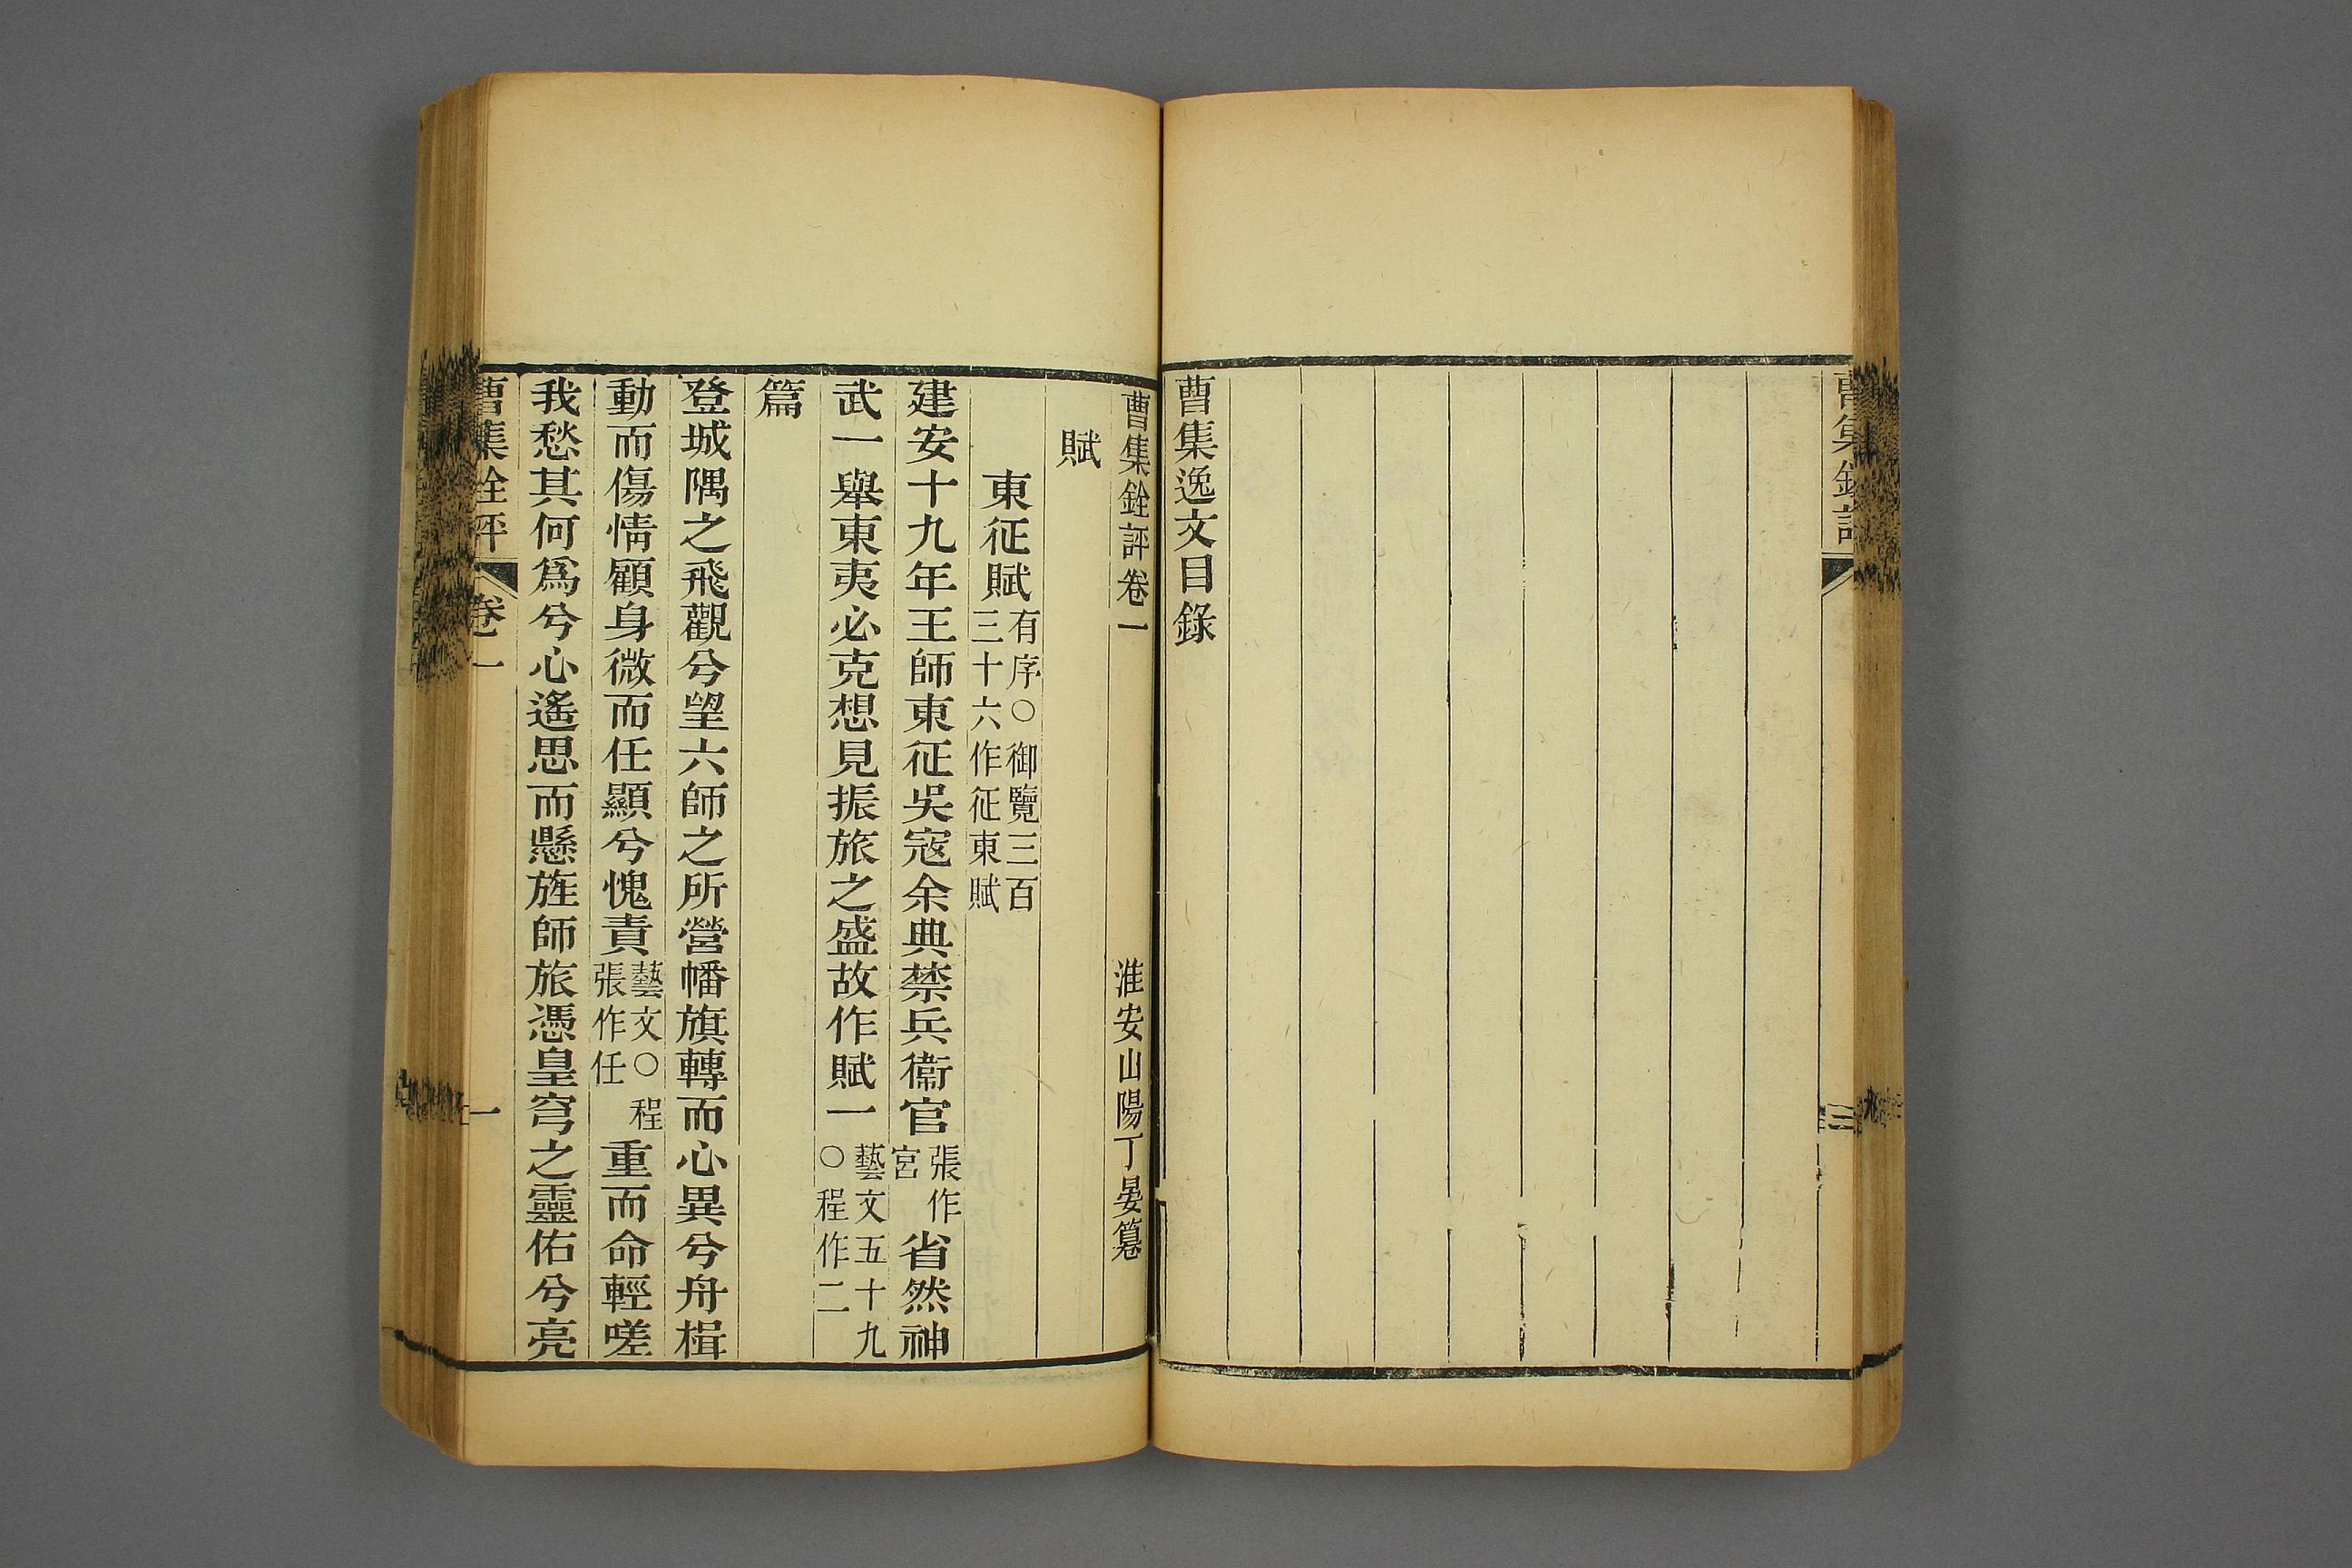 曹集銓評
曹集逸文目錄
曹集銓評卷一 淮安山陽丁晏纂
賦
東征賦有序○御覽三百三十六作征東賦
建安十九年王師東征吳寇余典禁兵衞官張作宮省然神
武一舉東夷必克想見振旅之盛故作賦一藝文五十九○程作二
篇
登城隅之飛觀兮望六師之所營幡旗轉而心異兮舟楫
動而傷情顧身微而任顯兮愧責藝文○程張作任重而命輕嗟
我愁其何爲兮心遙思而懸旌師旅憑皇穹之靈佑兮亮
曹集銓評 卷一 一